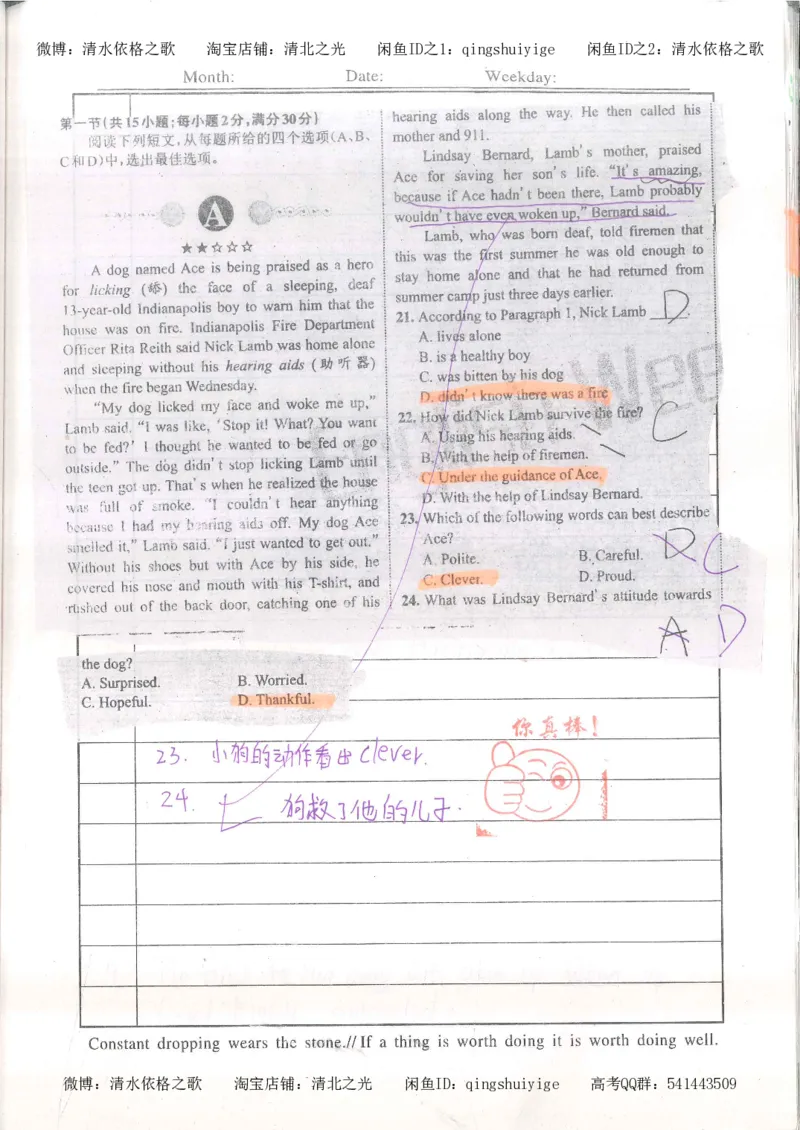 微博：清水依格之歌 淘宝店铺：清北之光 闲鱼ID之1：qingshuiyige 闲鱼ID之2：清水依格之歌
Month: Date: Weekday:
第一节(共15小题;每小题2分,满分30分)
阅读下列短文,从每题所给的四个选项(A、B、
C和D)中,选出最佳选项。
A
★★☆☆☆
A dog named Ace is being praised as a hero
for licking (舔) the face of a sleeping, deaf
13-year-old Indianapolis boy to warn him that the
house was on fire. Indianapolis Fire Department
Officer Rita Reith said Nick Lamb was home alone
and sleeping without his hearing aids (助听器)
when the fire began Wednesday.
"My dog licked my face and woke me up,"
Lamb said. "I was like, 'Stop it! What? You want
to be fed?' I thought he wanted to be fed or go
outside." The dog didn't stop licking Lamb until
the teen got up. That's when he realized the house
was full of smoke. "I couldn't hear anything
because I had my hearing aids off. My dog Ace
smelled it," Lamb said. "I just wanted to get out."
Without his shoes but with Ace by his side, he
covered his nose and mouth with his T-shirt, and
rushed out of the back door, catching one of his
hearing aids along the way. He then called his
mother and 911.
Lindsay Bernard, Lamb's mother, praised
Ace for saving her son's life. "It's amazing,
because if Ace hadn't been there, Lamb probably
wouldn't have even woken up," Bernard said.
Lamb, who was born deaf, told firemen that
this was the first summer he was old enough to
stay home alone and that he had returned from
summer camp just three days earlier.
21. According to Paragraph 1, Nick Lamb ____. D
A. lives alone
B. is a healthy boy
C. was bitten by his dog
D. didn't know there was a fire
22. How did Nick Lamb survive the fire? C
A. Using his hearing aids.
B. With the help of firemen.
C. Under the guidance of Ace.
D. With the help of Lindsay Bernard.
23. Which of the following words can best describe
Ace? D C
A. Polite. B. Careful.
C. Clever. D. Proud.
24. What was Lindsay Bernard's attitude towards
A D
the dog?
A. Surprised. B. Worried.
C. Hopeful. D. Thankful.
你真棒!
23. 小狗的动作看出 clever.
24. 狗救了他的儿子.
Constant dropping wears the stone.//If a thing is worth doing it is worth doing well.
微博：清水依格之歌 淘宝店铺：清北之光 闲鱼ID：qingshuiyige 高考QQ群：541443509